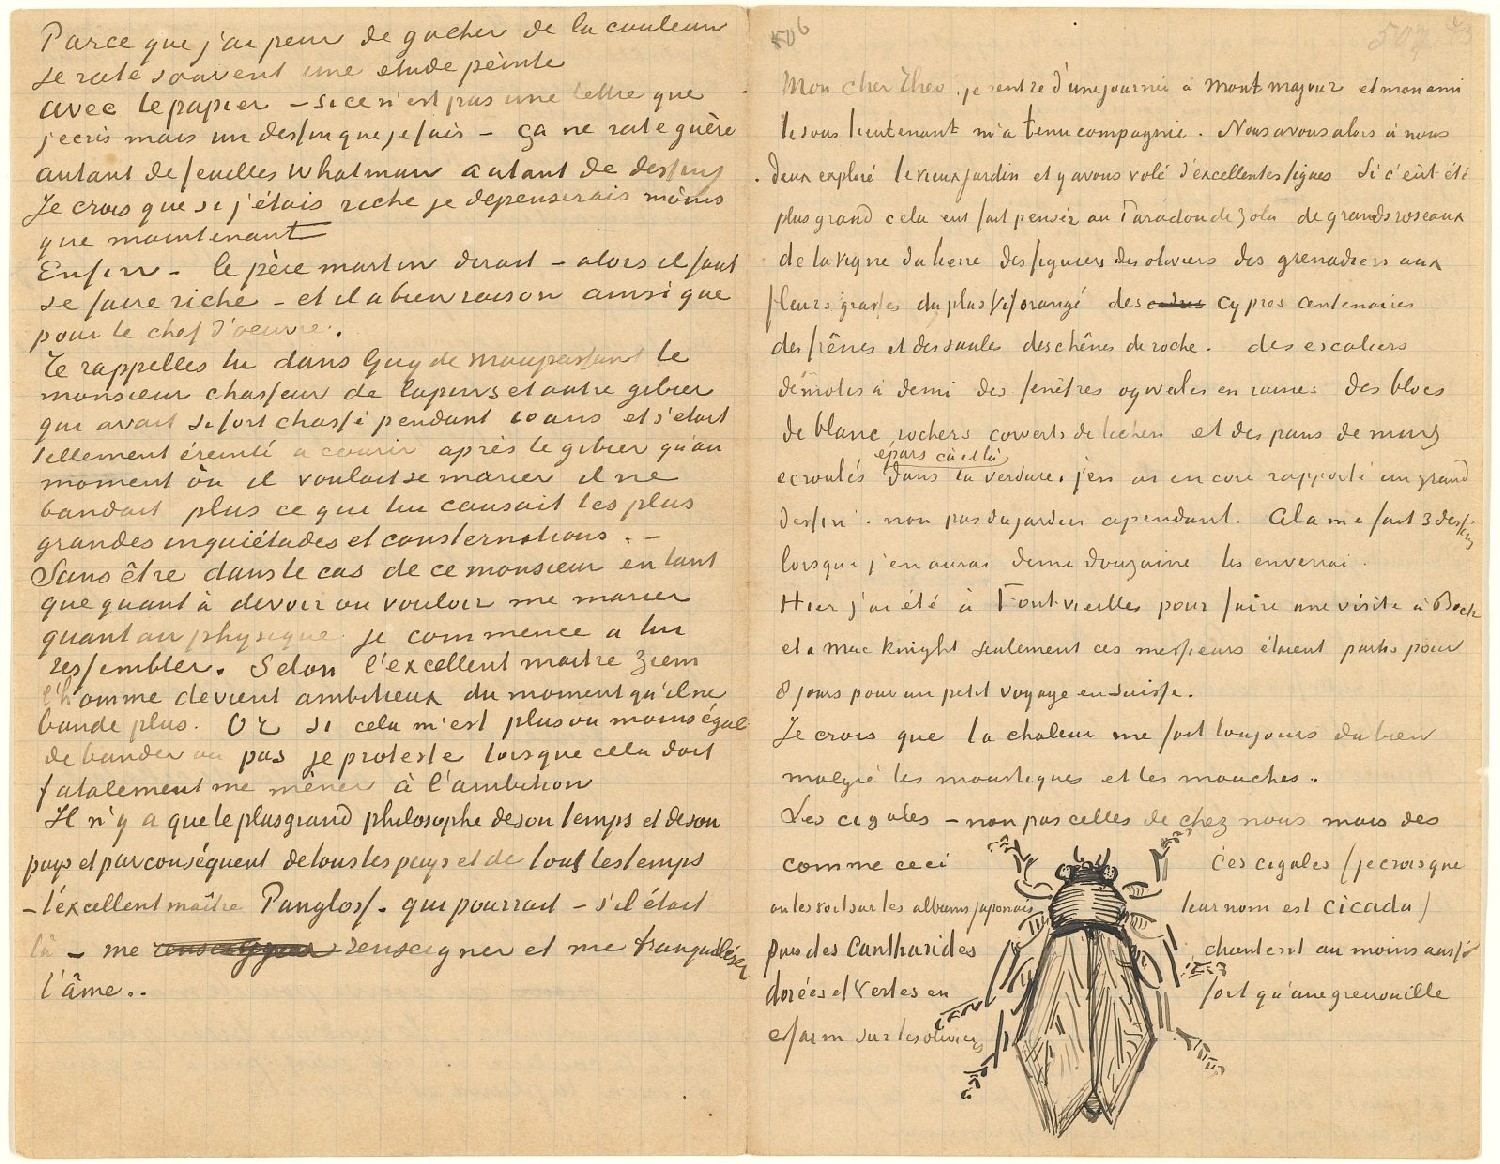 Parce que j'ai peur de gacher de la couleur
je rate souvent une etude peinte
avec le papier – si ce n'est pas une lettre que
j'ecris mais un dessin que je fais – ça ne rate guère
autant de feuilles Whatman autant de dessins
Je crois que si j'étais riche je depenserais moins
que maintenant
Enfin – le père martin dirait – alors il faut
se faire riche – et il a bien raison ainsi que
pour le chef d'oeuvre.
Te rappelles tu dans Guy de Maupassant le
monsieur chasseur de lapins et autre gibier
qui avait si fort chassé pendant 10 ans et s'etait
tellement éreinté a courir après le gibier qu'au
moment où il voulait se marier il ne
bandait plus ce que lui causait les plus
grandes inquiétudes et consternations. –
Sans être dans le cas de ce monsieur en tant
que quant à devoir ou vouloir me marier
quant au physique je commence a lui
ressembler. Selon l'excellent maitre Ziem
l'homme devient ambitieux du moment qu'il ne
bande plus. Or si cela m'est plus ou moins égal
de bander ou pas je proteste lorsque cela doit
fatalement me mêner à l'ambition
Il n'y a que le plus grand philosophe de son temps et de son
pays et par conséquent de tous les pays et de tout les temps
– l'excellent maître Pangloss. qui pourrait – s'il était
là – me renseigner et me tranquiliser
l'âme..
506
507
Mon cher Theo. je rentre d'une journée à Mont majour et mon ami
le sous lieutenant m'a tenu compagnie. Nous avons alors à nous
deux exploré le vieux jardin et y avons volé d'excellentes figues Si c'eut été
plus grand cela eut fait penser au Paradou de Zola de grands roseaux
de la vigne du lierre des figuiers des oliviers des grenadiers aux
fleurs grasses du plus vif orangé des cypres centenaires
des frênes et des saules des chênes de roche. des escaliers
démolis à demi des fenêtres ogivales en ruines des blocs
de blanc rochers couverts de lichen et des pans de murs
epars çà et là
ecroulés dans la verdure. j'en ai encore rapporté un grand
dessin. non pas du jardin cependant. Cela me fait 3 dessins
lorsque j'en aurai demi douzaine les enverrai.
Hier j'ai été à Fontvieilles pour faire une visite à Bock
et a Mac Knight seulement ces messieurs étaient partis pour
8 jours pour un petit voyage en Suisse.
Je crois que la chaleur me fait toujours du bien
malgré les moustiques et les mouches.
Les cigales – non pas celles de chez nous mais des
comme ceci
on les voit sur les albums japonais
puis des Cantharides
dorées et vertes en
essaim sur les oliviers
Ces cigales (je crois que
leur nom est cicada)
chantent au moins aussi
fort qu'une grenouille